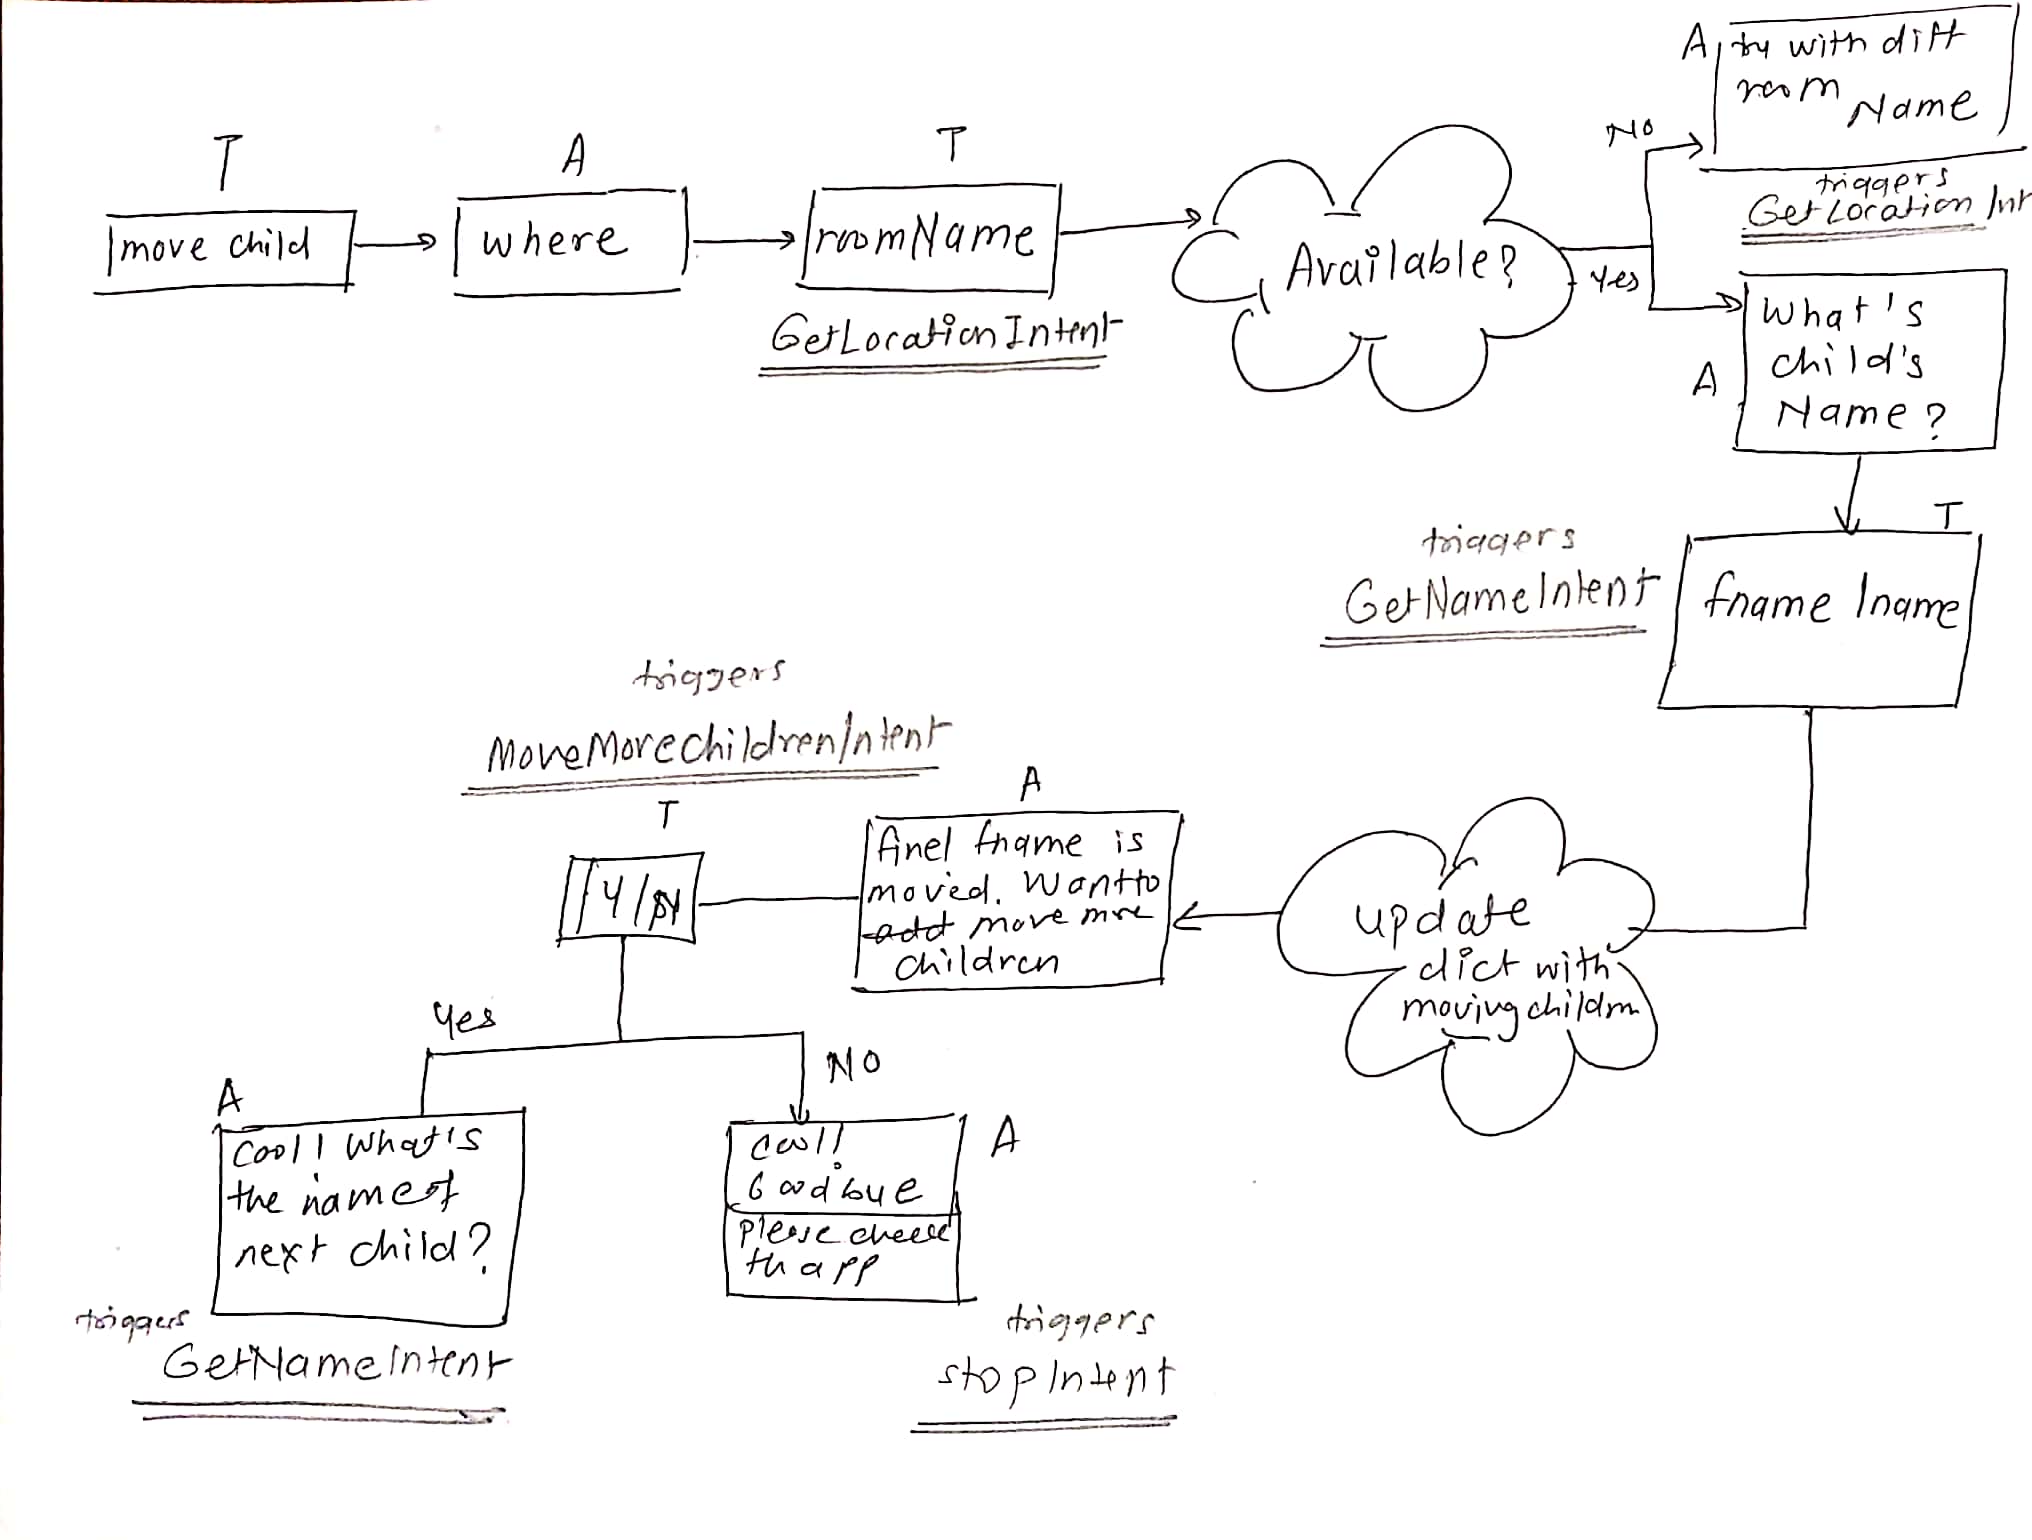 T
move child
A
where
T
roomName
GetLocationIntent
Available?
No
A
try with diff
room Name
triggers
GetLocation Int
Yes
A
What's
child's
Name?
T
fname lname
triggers
GetNameIntent
update
dict with
moving childrn
A
fine! fname is
moved. Want to
add move more
children
triggers
MoveMoreChildrenIntent
T
Y/N
Yes
A
Cool! What's
the name of
next child?
triggers
GetNameIntent
NO
A
Cool!
Goodbye
please check
th app
triggers
stopIntent